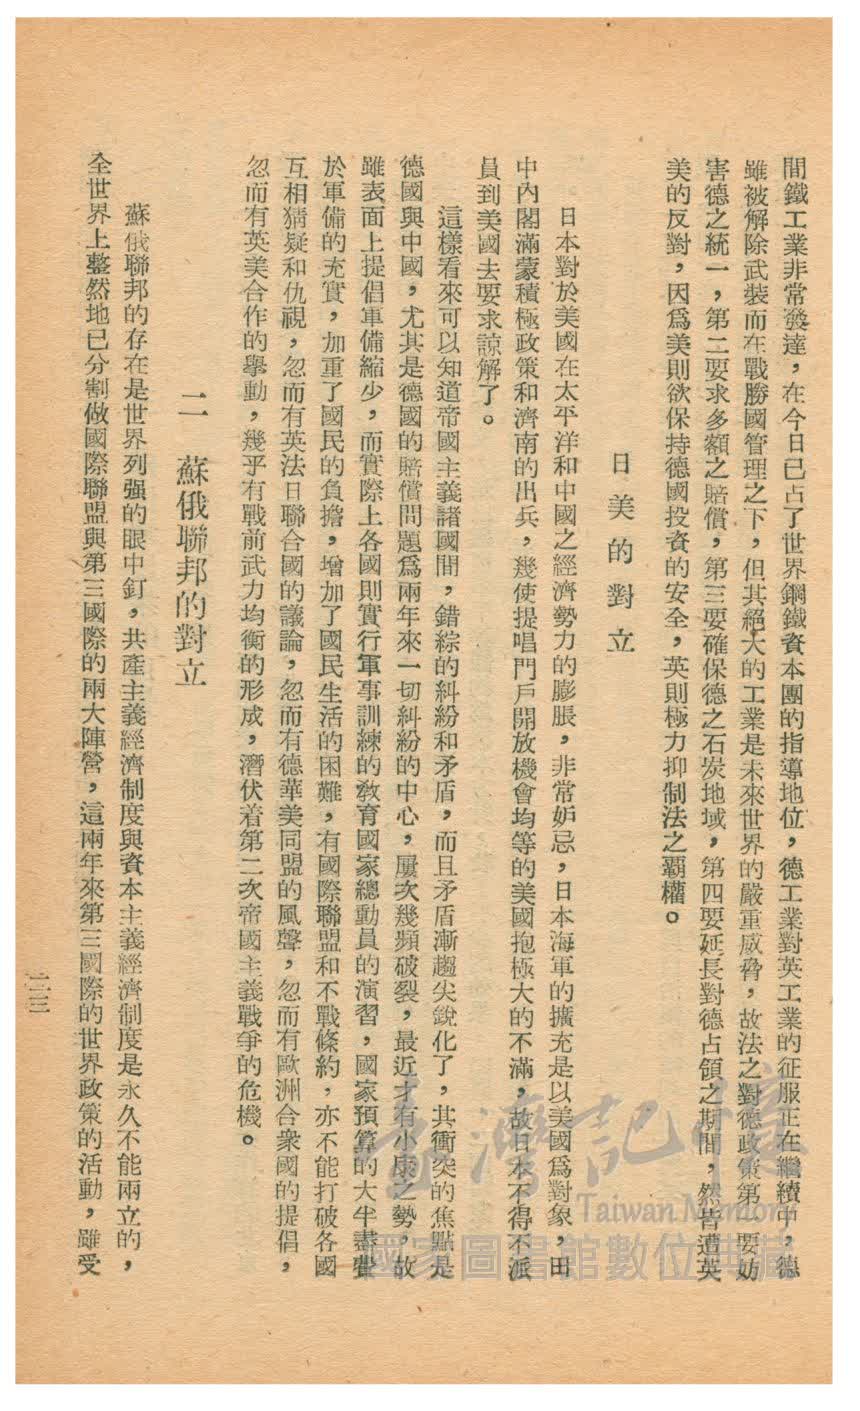 間鐵工業非常發達，在今日已占了世界鋼鐵資本團的指導地位，德工業對英工業的征服正在繼續中，德
雖被解除武裝而在戰勝國管理之下，但其絕大的工業是未來世界的嚴重威脅，故法之對德政策第一要妨
害德之統一，第二要求多額之賠償，第三要確保德之石炭地域，第四要延長對德占領之期間，然皆遭英
美的反對，因爲美則欲保持德國投資的安全，英則極力抑制法之覇權。
日美的對立
日本對於美國在太平洋和中國之經濟勢力的膨脹，非常妒忌，日本海軍的擴充是以美國爲對象，田
中內閣滿蒙積極政策和濟南的出兵，幾使提唱門戶開放機會均等的美國抱極大的不滿，故日本不得不派
員到美國去要求諒解了。
這樣看來可以知道帝國主義諸國間，錯綜的糾紛和矛盾，而且矛盾漸趨尖銳化了，其衝突的焦點是
德國與中國，尤其是德國的賠償問題爲兩年來一切糾紛的中心，屢次幾頻破裂，最近才有小康之勢，故
雖表面上提倡軍備縮少，而實際上各國則實行軍事訓練的教育國家總動員的演習，國家預算的大半盡費
於軍備的充實，加重了國民的負擔，增加了國民生活的困難，有國際聯盟和不戰條約，亦不能打破各國
互相猜疑和仇視，忽而有英法日聯合國的議論，忽而有德華美同盟的風聲，忽而有歐洲合衆國的提倡，
忽而有英美合作的舉動，幾乎有戰前武力均衡的形成，潛伏着第二次帝國主義戰爭的危機。
二 蘇俄聯邦的對立
蘇俄聯邦的存在是世界列强的眼中釘，共產主義經濟制度與資本主義經濟制度是永久不能兩立的，
全世界上整然地已分割做國際聯盟與第三國際的兩大陣營，這兩年來第三國際的世界政策的活動，雖受
二三
臺灣記憶
Taiwan Memory
國家圖書館數位典藏